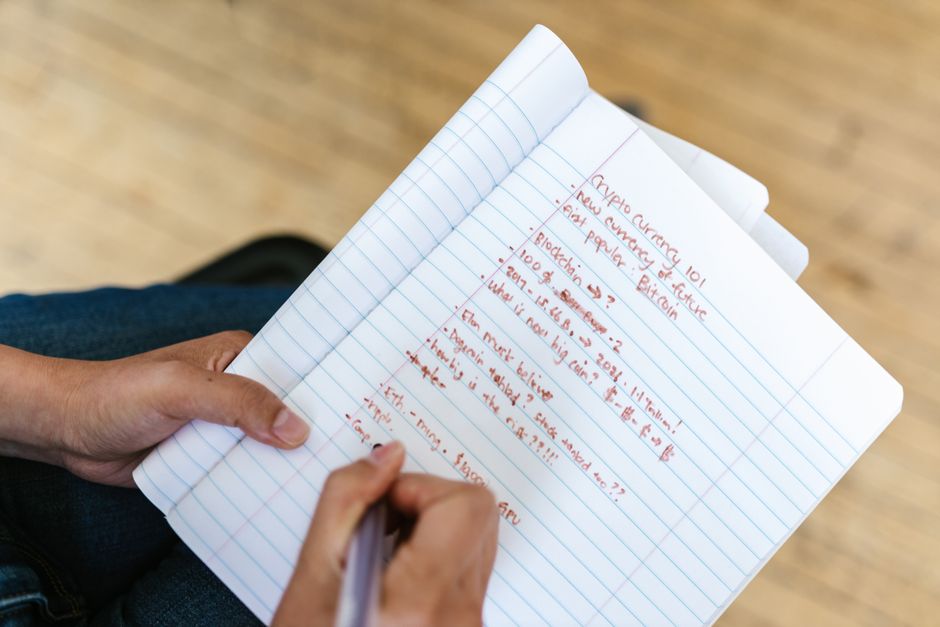 Crypto Currency 101
- New currency of future
- First popular: Bitcoin
- Blockchain → ?
- 100 
- 2017. 15.66 B. → 2021. 1.1 Trillion!
- What is next big coin? $ - $ - $ → $
Elon musk believes
- Dogecoin tanked? Stock tanked too??
- how big is the risk ??!!
- Eth. - ming. 
- Crypto.